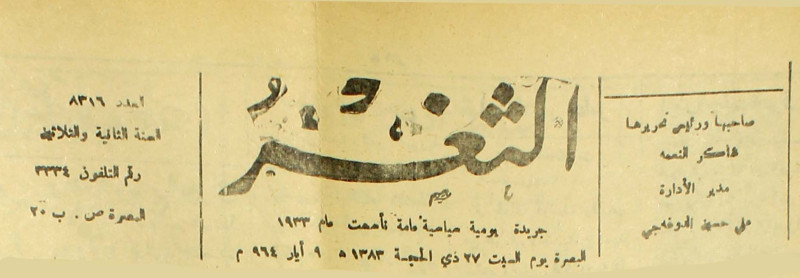 صاحبها ورئيس تحريرها
شاكر النعمه
مدير الأدارة
علي حسين الدوغجي
الثغر
جريدة يومية سياسية عامة تأسست عام ١٩٣٣
البصرة يوم السبت ٢٧ ذي الحجة ١٣٨٣ ه ٩ أيار ٩٦٤ م
العدد ٨٣١٦
السنة الثانية والثلاثين
رقم التلفون ٣٣٣٤
البصرة ص . ب ٢٠